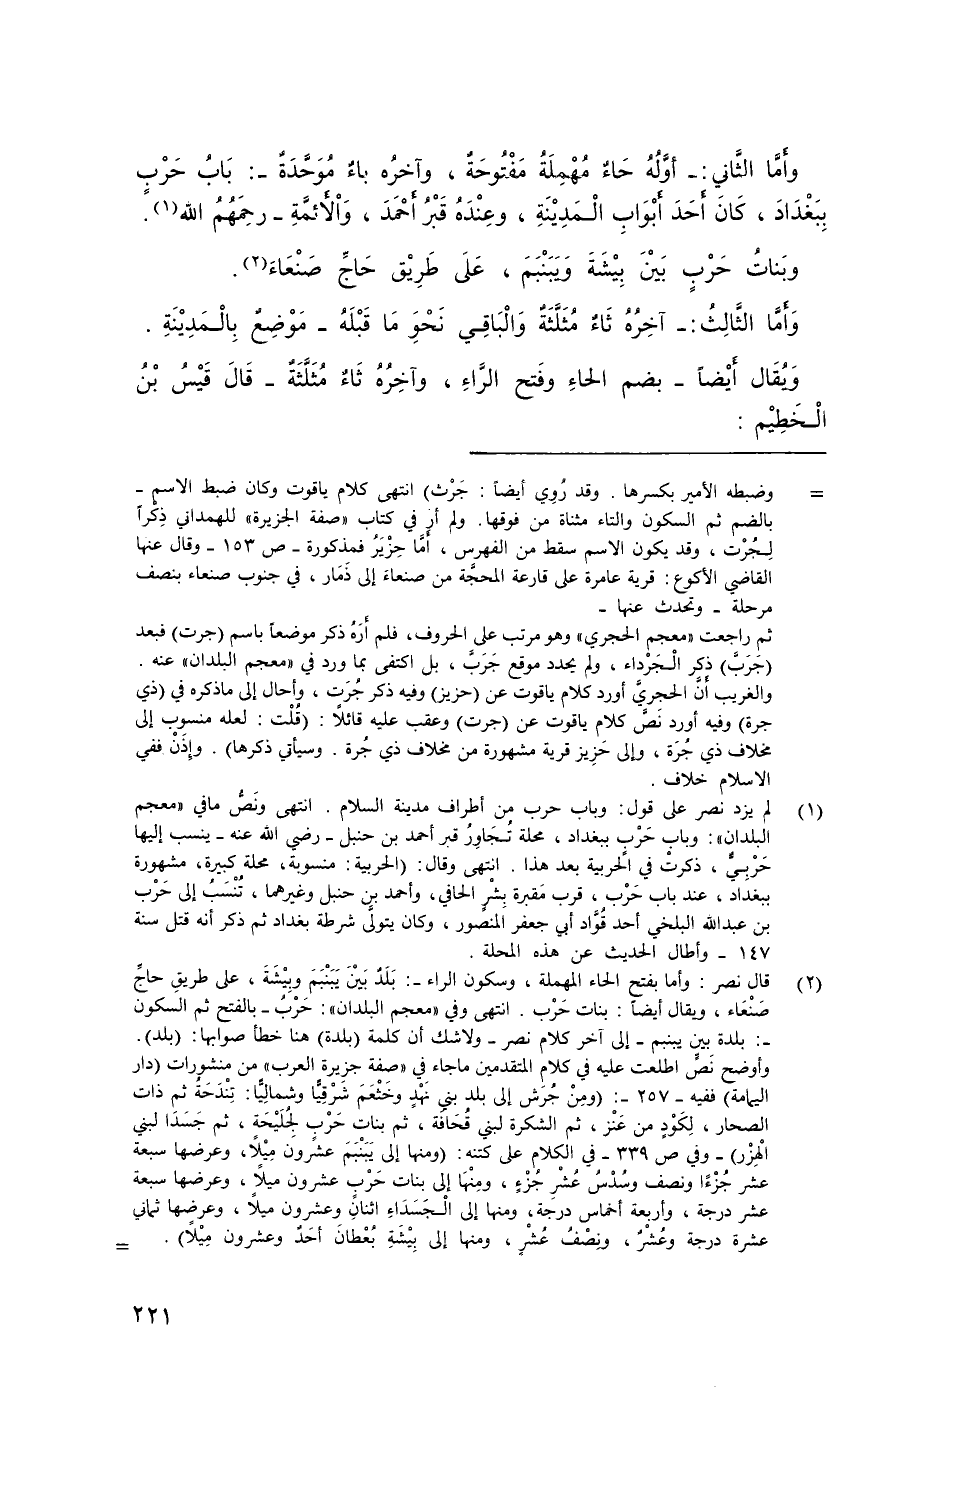 وأَمَّا الثَّاني :ـ أوَّلُهُ حَاءٌ مُهْمِلَةٌ مَفْتُوحَةٌ ، وآخرُه باءٌ مُوَحَّدَةٌ ـ: بَابُ حَرْبٍ
بِبَغْدَادَ ، كَانَ أَحَدَ أَبْوَابِ الْـمَدِيْنَةِ ، وعِنْدَهُ قَبْرُ أَحْمَدَ ، وَالْأَئمَّةِ ـ رحِمَهُمُ الله(١).
وبَناتُ حَرْبٍ بَيْنَ بِيْشَةَ وَيَبَنْبَم ، عَلَى طَرِيْق حَاجِّ صَنْعَاءَ(٢).
وَأَمَّا الثَّالِثُ :ـ آخِرُهُ ثَاءٌ مُثَلَّثَةٌ وَالْبَاقِـي نَحْوَ مَا قَبْلَهُ ـ مَوْضِعٌ بِالْـمَدِيْنَةِ .
وَيُقَال أَيْضاً ـ بضم الحاءِ وفَتح الرَّاءِ ، وآخِرُهُ ثَاءٌ مُثَلَّثَةٌ ـ قَالَ قَيْسُ بْنُ
الْـخَطِيْم :
= وضبطه الأمير بكسرها . وقد رُوِي أيضاً : جَرْث) انتهى كلام ياقوت وكان ضبط الاسم ـ
بالضم ثم السكون والتاء مثناة من فوقها. ولم أر في كتاب «صفة الجزيرة» للهمداني ذِكْراً
لِـجُرْت ، وقد يكون الاسم سقط من الفهرس ، أَمَّا حِزْيَزُ فمذكورة ـ ص ١٥٣ ـ وقال عنها
القاضي الأكوع : قرية عامرة على قارعة المحجَّة من صنعاءَ إلى ذَمَار ، في جنوب صنعاء بنصف
مرحلة ـ وتحدث عنها ـ
ثم راجعت «معجم الحجري» وهو مرتب على الحروف، فلم أَرَهُ ذكر موضعاً باسم (جرت) فبعد
(جَرَبَّ) ذكر الْـجَرْداء ، ولم يحدد موقع جَرَبَّ ، بل اكتفى بما ورد في «معجم البلدان» عنه .
والغريب أنَّ الحجريَّ أورد كلام ياقوت عن (حزيز) وفيه ذكر جُرَت ، وأحال إلى ماذكره في (ذي
جرة) وفيه أورد نَصَّ كلام ياقوت عن (جرت) وعقب عليه قائلاً : (قُلْت : لعله منسوب إلى
مخلاف ذي جُرَة ، وإلى حَزِيز قرية مشهورة من مخلاف ذي جُرة . وسيأتي ذكرها) . وإذَنْ ففي
الاسلام خلاف .
(١) لم يزد نصر على قول: وباب حرب من أطراف مدينة السلام . انتهى ونَصُّ مافي «معجم
البلدان»: وباب حَرْبٍ ببغداد ، محلة تُـجَاوِرُ قبر أحمد بن حنبل ـ رضي الله عنه ـ ينسب إليها
حَرْبِـيٌّ ، ذكرتْ في الحَربية بعد هذا . انتهى وقال: (الحربية: منسوبة، محلة كبيرة، مشهورة
ببغداد ، عند باب حَرْب ، قرب مَقبرة بِشْر الحافي، وأحمد بن حنبل وغيرهما ، تُنْسَبُ إلى حَرْب
بن عبدالله البلخي أحد قُوَّاد أبي جعفر المنصور ، وكان يتولَّى شرطة بغداد ثم ذكر أنه قتل سنة
١٤٧ ـ وأطال الحديث عن هذه المحلة .
(٢) قال نصر : وأما بفتح الحاء المهملة ، وسكون الراء ـ: بَلَدٌ بَيْنَ يَبَنْبَمَ وبِيْشَةَ ، على طريقِ حاجِّ
صَنْعَاء ، ويقال أيضاً : بنات حَرْب . انتهى وفي «معجم البلدان»: حَرْبُ ـ بالفتح ثم السكون
ـ: بلدة بين يبنبم ـ إلى آخر كلام نصر ـ ولاشك أن كلمة (بلدة) هنا خطأ صوابها: (بلد).
وأوضح نَصٍّ اطلعت عليه في كلام المتقدمين ماجاء في «صفة جزيرة العرب» من منشورات (دار
اليمامة) ففيه ـ ٢٥٧ ـ: (ومِنْ جُرَش إلى بلد بني نَهْدٍ وخَثْعَمَ شَرْقِيًّا وشمالِيًّا: تِنْدَحَةُ ثم ذات
الصحار ، لِكَوْدٍ من عَنْز ، ثم الشكرة لبني قُحَافَة ، ثم بنات حَرْبٍ لجُلَيْحَةٍ ، ثم جَسَدَا لبني
الْهِزْر) ـ وفي ص ٣٣٩ ـ في الكلام على كتنه: (ومنها إلى يَبَنْبَمَ عشرون مِيْلًا، وعرضها سبعة
عشر جُزْءًا ونصف وسُدْسُ عُشْرِ جُزْءٍ ، ومِنْهَا إلى بنات حَرْبٍ عشرون ميلاً ، وعرضها سبعة
عشر درجة ، وأربعة أخماس درجة، ومنها إلى الْـجَسَدَاءِ اثنانِ وعشرون ميلاً ، وعرضها ثماني
عشرة درجة وعُشْرٌ ، ونِصْفُ عُشْرٍ ، ومنها إلى بِيْشَةِ بُعْطانَ أحَدٌ وعشرون مِيْلًا) . =
٢٢١